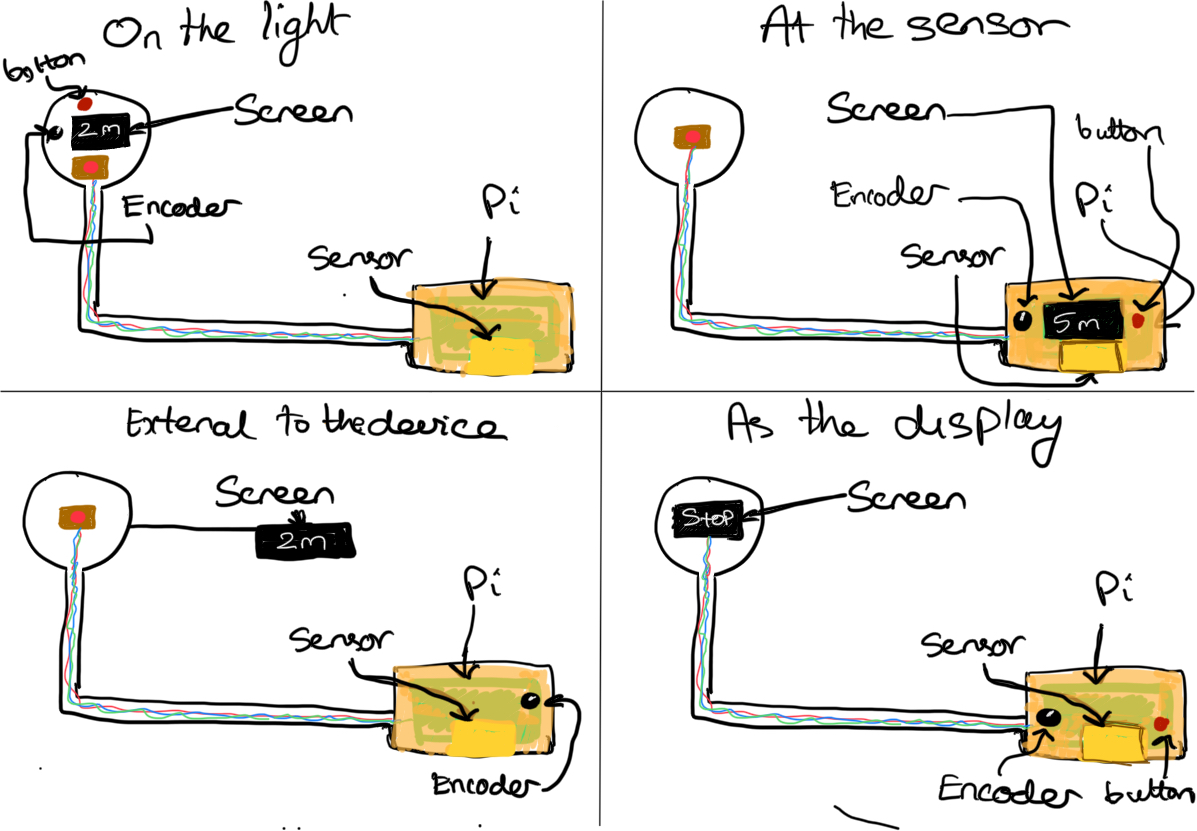 On the light
button
2m
Screen
Encoder
Pi
Sensor
At the sensor
Screen
button
Encoder
Pi
Sensor
5m
Extenal to the device
Screen
2m
Pi
Sensor
Encoder
As the display
Stop
Screen
Pi
Sensor
Encoder button